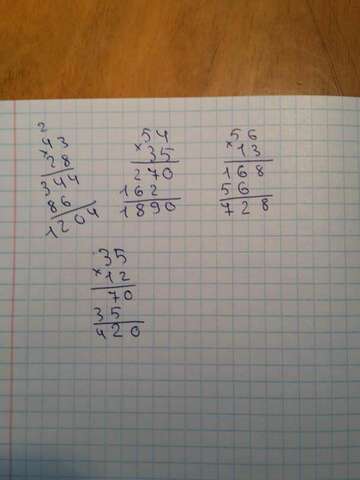 2
43
× 28
344
86
1204
54
× 35
270
162
1890
56
× 13
168
56
728
35
× 12
70
35
420